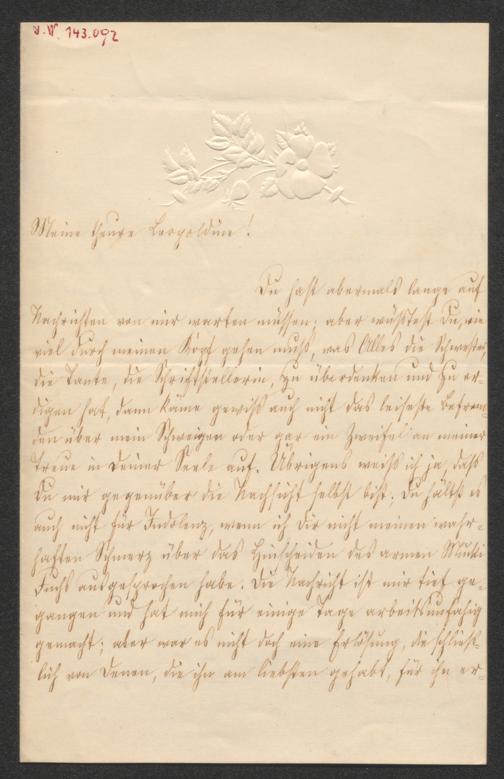 I.N. 143.092
Meine theure Leopoldine!
Du hast abermals lange auf
Nachrichten von mir warten müssen; aber wüßtest Du, wie
viel durch meinen Kopf gehen muß, was Alles die Schwester,
die Tante, die Schriftstellerin, zu überdenken und zu er-
digen hat, dann käme gewiß auch nicht das leiseste Befrem-
den über mein Schweigen oder gar ein Zweifel an meiner
Treue in Deiner Seele auf. Übrigens weiß ich ja, daß
Du mir gegenüber die Nachsicht selbst bist; Du hältst es
auch nicht für Indolenz, wenn ich Dir nicht meinen wahr-
haften Schmerz über das Hinscheiden des armen
Fuchs ausgesprochen habe. Die Nachricht ist mir tief ge-
gangen und hat mich für einige Tage arbeitsunfähig
gemacht; aber war es nicht doch eine Erlösung, die schließ-
lich von Denen, die ihn am liebsten gehabt, für ihn er-